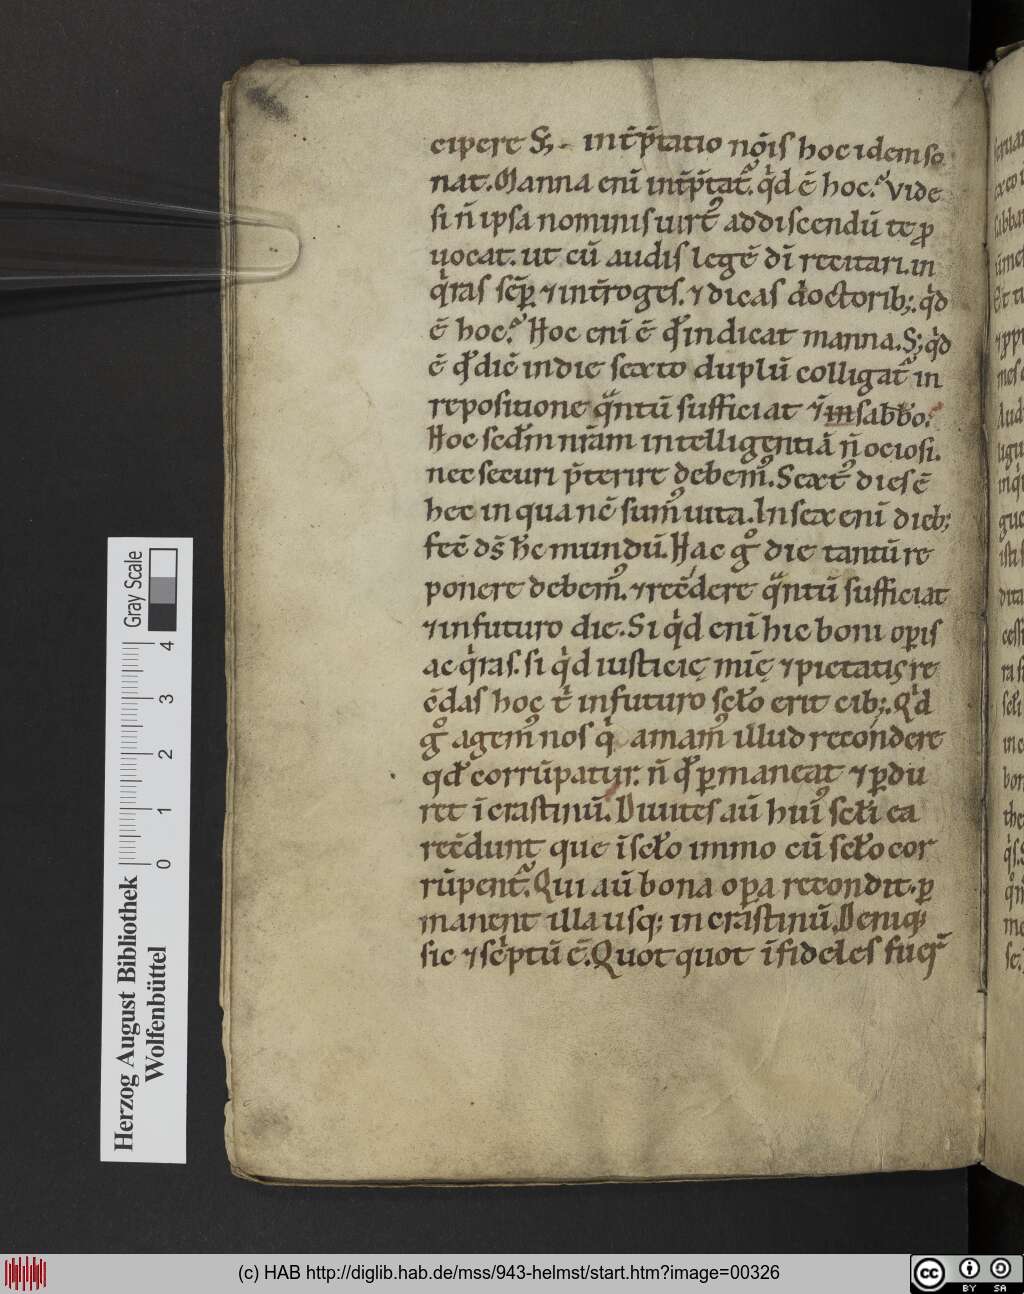 cipere S; intp̄tatio nōis hoc idem so
nat. Manna enī intp̄tat᷑. q̇d ē hoc? Vide
si n̄ ipsa nominis uirt᷑ ad discendū te ꝓ
uocat. ut cū audis legē dī recitari. in
q̇ras sēꝑ ⁊ int̄roges. ⁊ dicas doctorib;. q̇d
ē hoc? Hoc enī ē qđ indicat manna. S; q̇d
ē qđ diē in die sexto duplū colligat᷑ in
repositione qᷓntū sufficiat ⁊̄ in sabbo.
Hoc scđm nr̄am intelligentiā n̄ ociosi.
nec securi p̄terire debem᷒. Sext᷒ dies ē
hec in qua nc̄ sum᷒ uita. In sex enī dieb;
fec̄ ds̄ hc̄ mundū. Hac gͦ die tantū re
ponere debem᷒. ⁊ recōdere qᷓntū sufficiat
⁊ in futuro die. Si q̇d enī hic boni oꝑis
ac q̇ras. si q̇d iusticię mīę ⁊ pietatis re
cōdas hoc t᷒ in futuro scło erit cib;. Q̇d
gͦ agem᷒ nos q̇ amam᷒ illud recondere
qđ corrūpatur. n̄ qđ ꝑmaneat ⁊ ꝑdu
ret ī crastinū. Diuites aū hui᷒ scłi ea
recōdunt que ī scło immo cū scło cor
rūpent᷑. Qui aū bona oꝑa recondit. ꝑ
manent illa usq; in crastinū. Deniq;
sic ⁊ scͥptū ē. Quot quot īfideles fuer̄
Herzog August Bibliothek
Wolfenbüttel
0 1 2 3 4
Gray Scale
(c) HAB http://diglib.hab.de/mss/943-helmst/start.htm?image=00326
cc BY SA